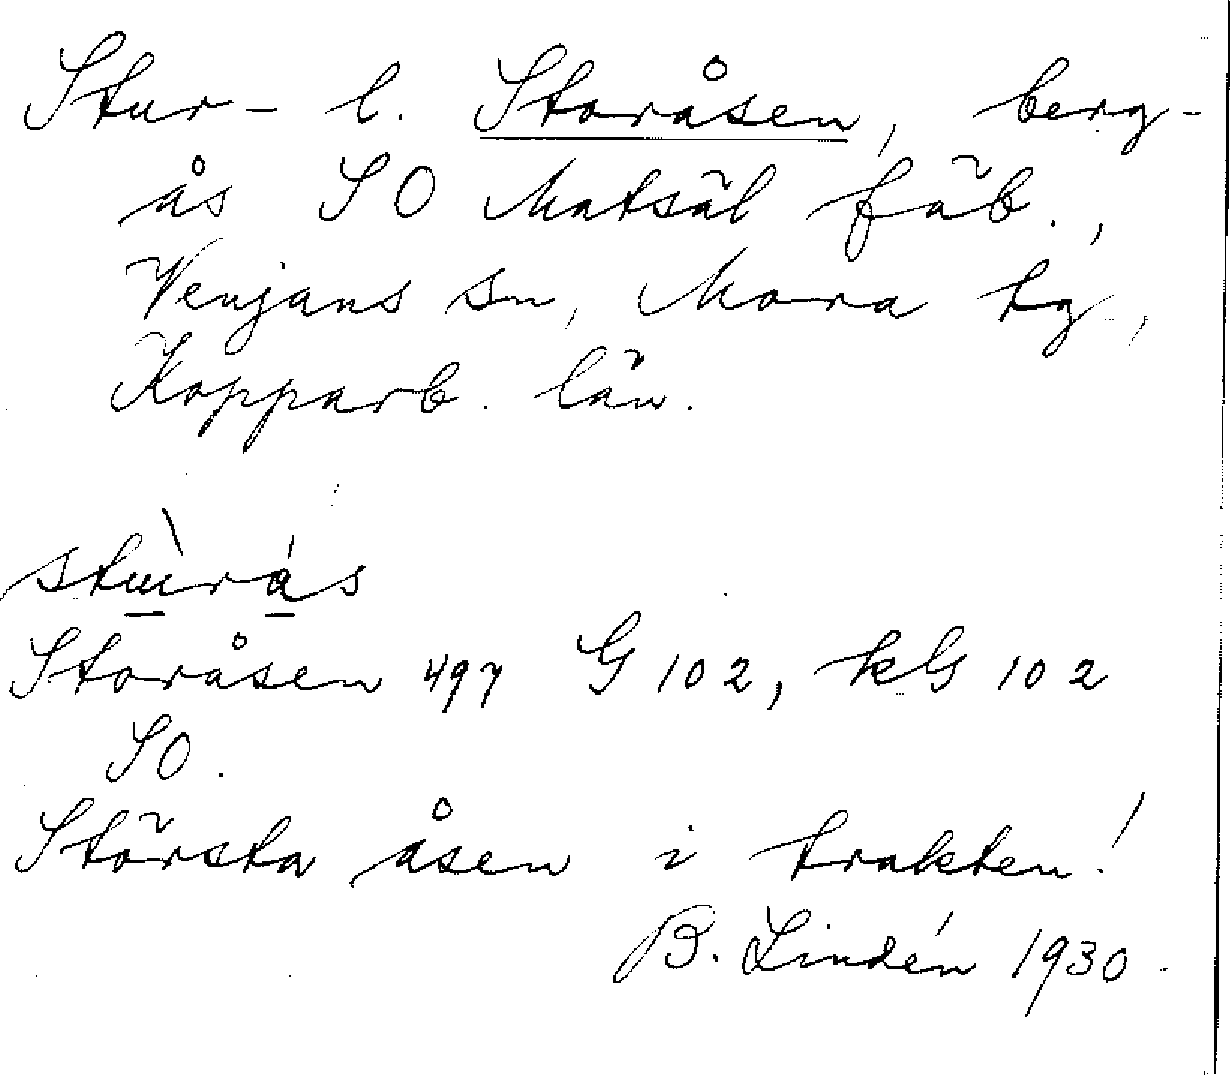 Stur- l. Storåsen, berg-
ås SO Matsäl fäb.,
Venjans sn, Mora tg,
Kopparb. län.
stùrás
Storåsen 497 G 102, kG 102
SO.
Största åsen i trakten!
B. Lindén 1930.